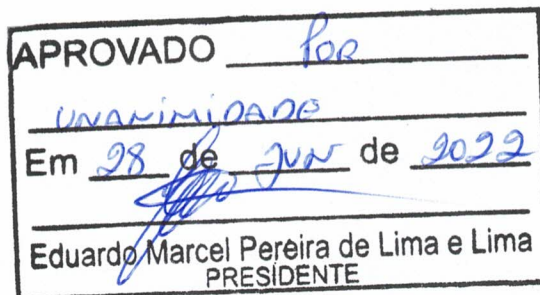 APROVADO Por
UNANIMIDADE
Em 28 de JUN de 2022
Eduardo Marcel Pereira de Lima e Lima
PRESIDENTE